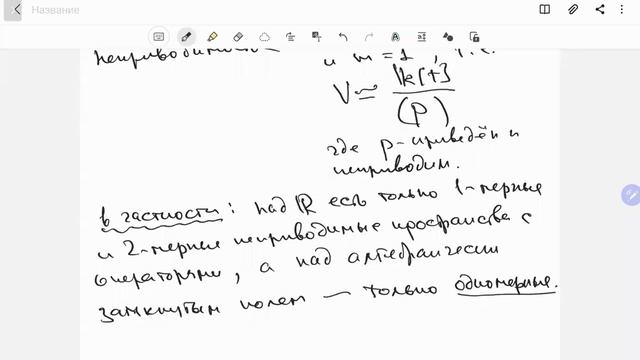 Название
неприводимость
и m = 1, т.е.
V ≃ k[t] / (p)
где p - приведён и
неприводим.
в частности: над ℝ есть только 1-мерные
и 2-мерные неприводимые пространства с
операторами, а над алгебраически
замкнутым полем — только одномерные.